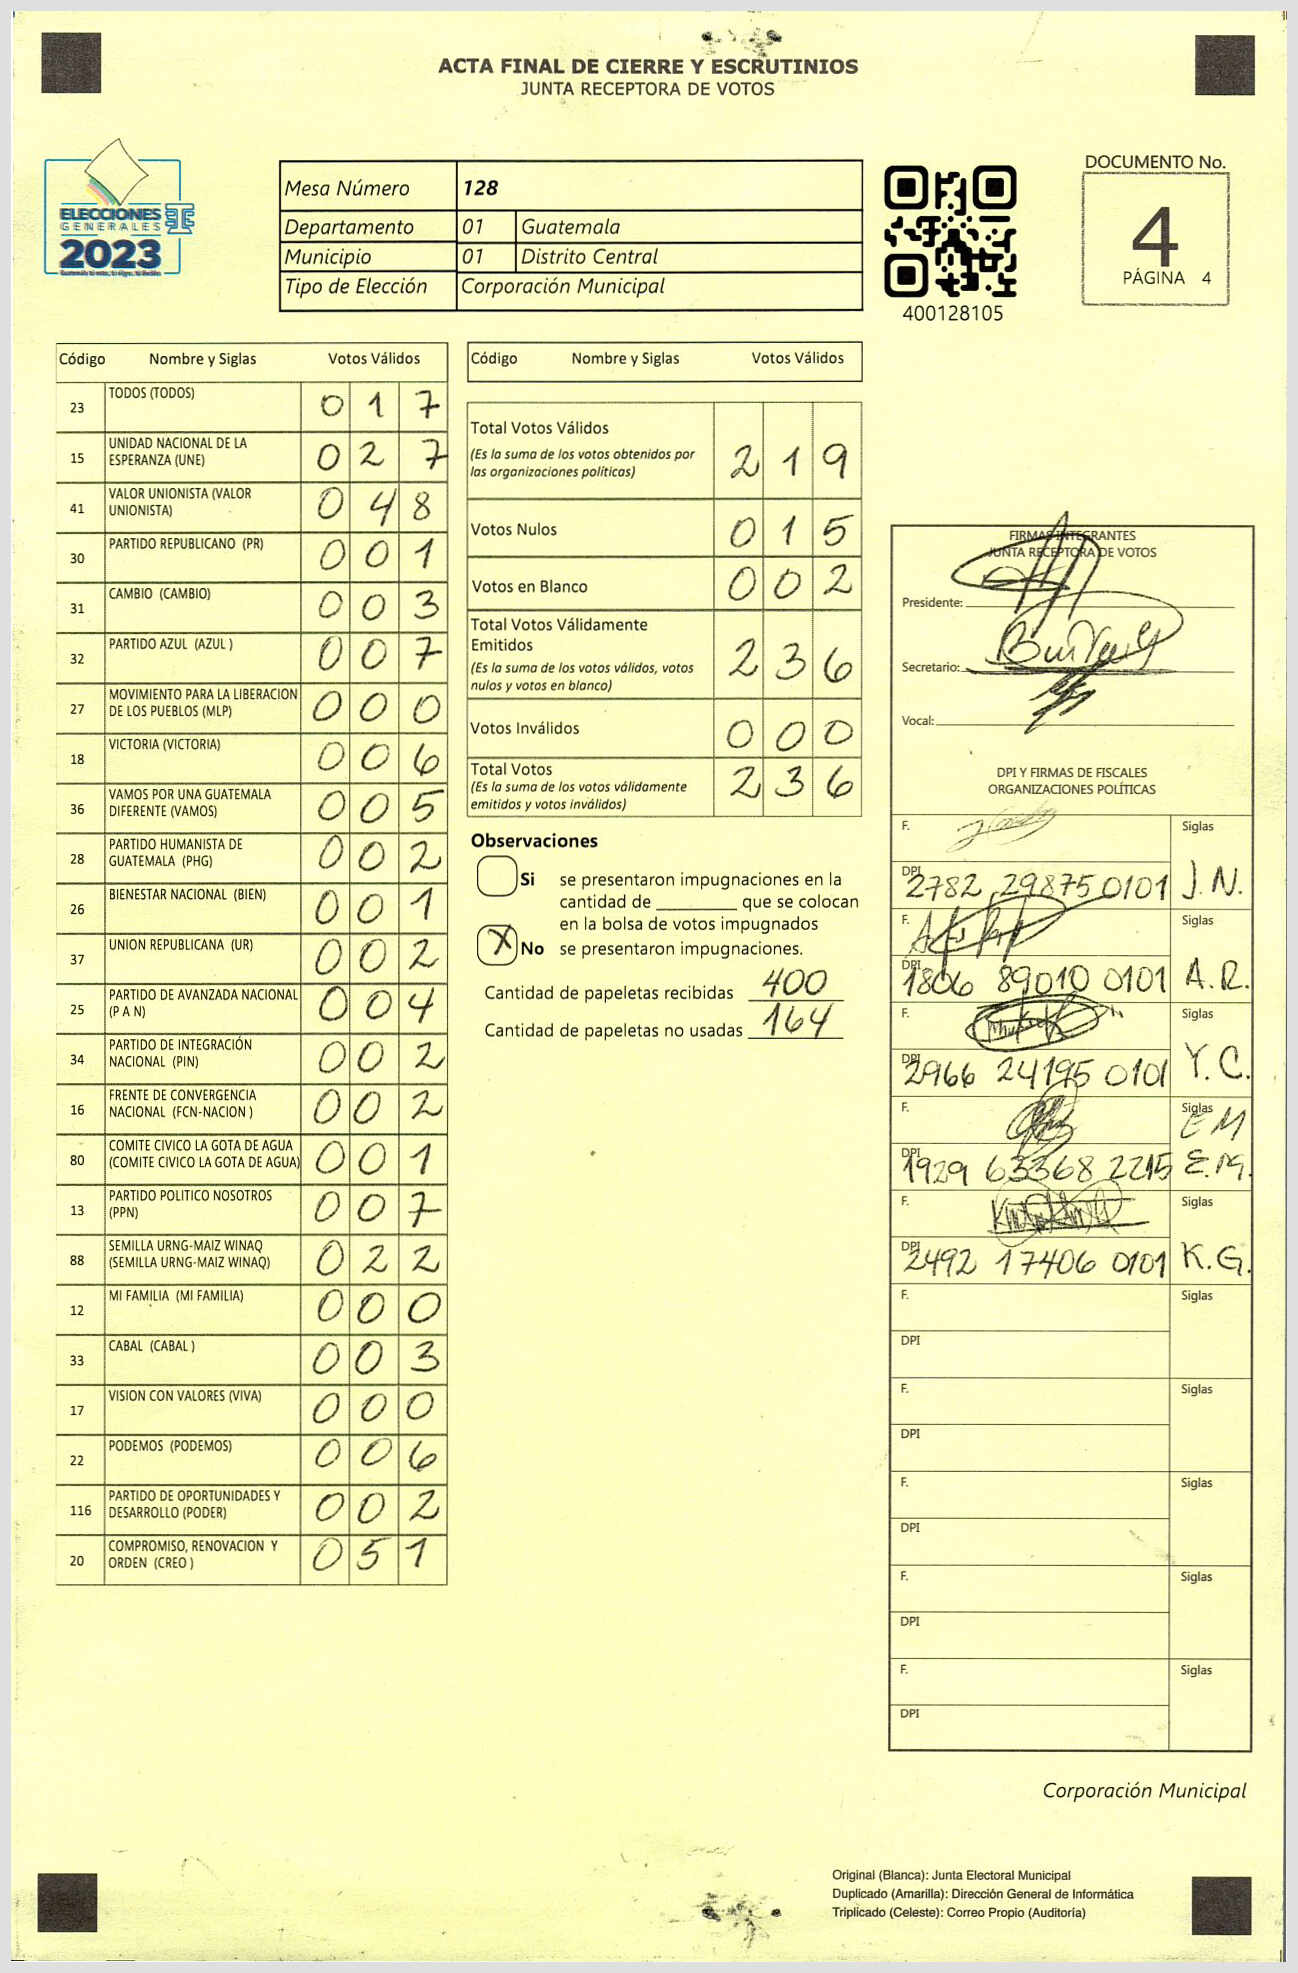 ACTA FINAL DE CIERRE Y ESCRUTINIOS
JUNTA RECEPTORA DE VOTOS
ELECCIONES
GENERALES
2023
Mesa Número 128
Departamento 01 Guatemala
Municipio 01 Distrito Central
Tipo de Elección Corporación Municipal
400128105
DOCUMENTO No.
4
PÁGINA 4
Código Nombre y Siglas Votos Válidos
23 TODOS (TODOS) 0 1 7
15 UNIDAD NACIONAL DE LA
ESPERANZA (UNE) 0 2 7
41 VALOR UNIONISTA (VALOR
UNIONISTA) 0 4 8
30 PARTIDO REPUBLICANO (PR) 0 0 1
31 CAMBIO (CAMBIO) 0 0 3
32 PARTIDO AZUL (AZUL ) 0 0 7
27 MOVIMIENTO PARA LA LIBERACION
DE LOS PUEBLOS (MLP) 0 0 0
18 VICTORIA (VICTORIA) 0 0 6
36 VAMOS POR UNA GUATEMALA
DIFERENTE (VAMOS) 0 0 5
28 PARTIDO HUMANISTA DE
GUATEMALA (PHG) 0 0 2
26 BIENESTAR NACIONAL (BIEN) 0 0 1
37 UNION REPUBLICANA (UR) 0 0 2
25 PARTIDO DE AVANZADA NACIONAL
(P A N) 0 0 4
34 PARTIDO DE INTEGRACIÓN
NACIONAL (PIN) 0 0 2
16 FRENTE DE CONVERGENCIA
NACIONAL (FCN-NACION ) 0 0 2
80 COMITE CIVICO LA GOTA DE AGUA
(COMITE CIVICO LA GOTA DE AGUA) 0 0 1
13 PARTIDO POLITICO NOSOTROS
(PPN) 0 0 7
88 SEMILLA URNG-MAIZ WINAQ
(SEMILLA URNG-MAIZ WINAQ) 0 2 2
12 MI FAMILIA (MI FAMILIA) 0 0 0
33 CABAL (CABAL ) 0 0 3
17 VISION CON VALORES (VIVA) 0 0 0
22 PODEMOS (PODEMOS) 0 0 6
116 PARTIDO DE OPORTUNIDADES Y
DESARROLLO (PODER) 0 0 2
20 COMPROMISO, RENOVACION Y
ORDEN (CREO ) 0 5 1
Código Nombre y Siglas Votos Válidos
Total Votos Válidos
(Es la suma de los votos obtenidos por
las organizaciones políticas) 2 1 9
Votos Nulos 0 1 5
Votos en Blanco 0 0 2
Total Votos Válidamente
Emitidos
(Es la suma de los votos válidos, votos
nulos y votos en blanco) 2 3 6
Votos Inválidos 0 0 0
Total Votos
(Es la suma de los votos válidamente
emitidos y votos inválidos) 2 3 6
Observaciones
Si se presentaron impugnaciones en la
cantidad de ________ que se colocan
en la bolsa de votos impugnados
X No se presentaron impugnaciones.
Cantidad de papeletas recibidas 400
Cantidad de papeletas no usadas 164
FIRMAS INTEGRANTES
JUNTA RECEPTORA DE VOTOS
Presidente:
Secretario:
Vocal:
DPI Y FIRMAS DE FISCALES
ORGANIZACIONES POLÍTICAS
F. Siglas
DPI 2782 29875 0101 J.N.
F. Siglas
DPI 1806 89010 0101 A.R.
F. Siglas
DPI 2966 24195 0101 Y.C.
F. Siglas EM
DPI 1929 63368 2215 E.M.
F. Siglas
DPI 2492 17406 0101 K.G.
F. Siglas
DPI
F. Siglas
DPI
F. Siglas
DPI
F. Siglas
DPI
F. Siglas
DPI
Corporación Municipal
Original (Blanca): Junta Electoral Municipal
Duplicado (Amarilla): Dirección General de Informática
Triplicado (Celeste): Correo Propio (Auditoría)